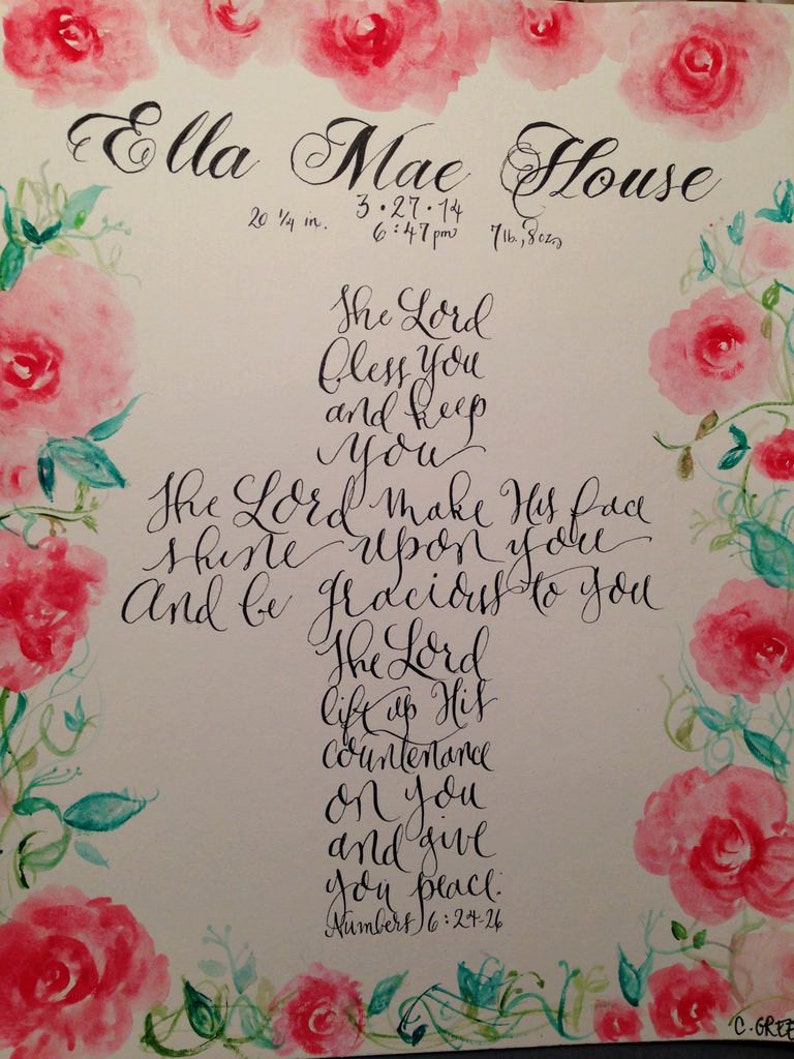 Ella Mae House
3·27·14
20 1/4 in. 6:47pm 7lb., 8oz.
The Lord
bless you
and keep
you
The Lord make His face
shine upon you
And be gracious to you
The Lord
lift up His
countenance
on you
and give
you peace.
Numbers 6:24-26
C. GREE